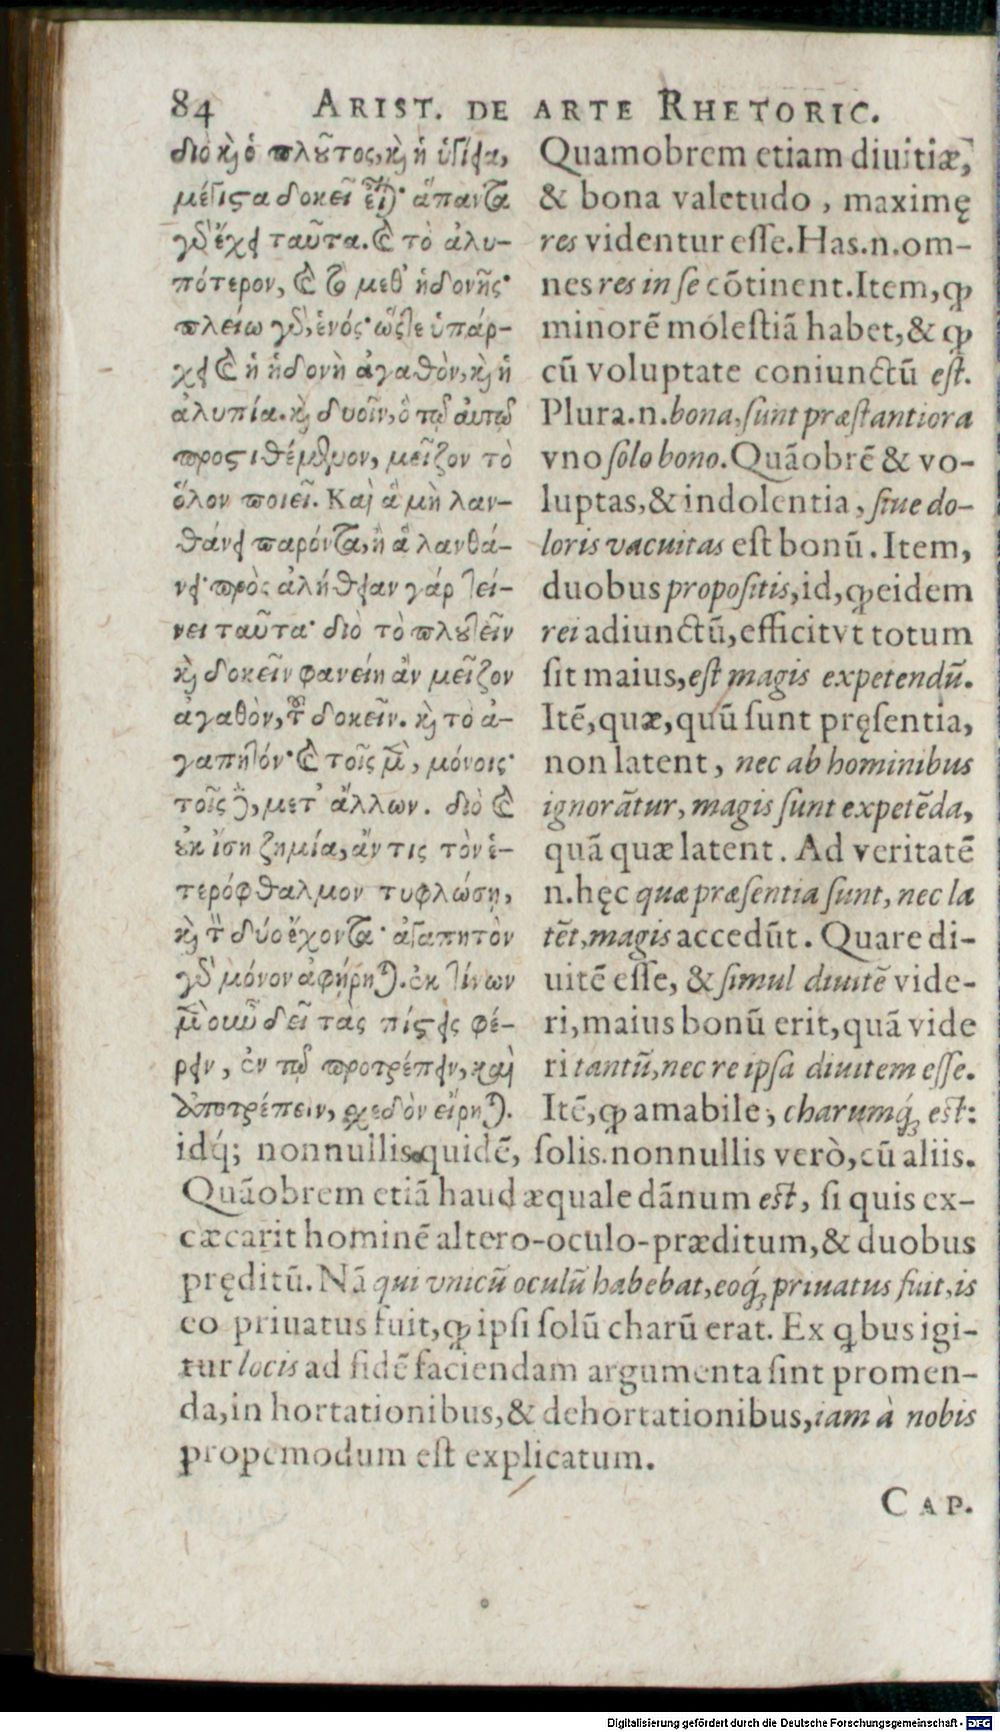 84 ARIST. DE ARTE RHETORIC.
διὸ κὶ ὁ πλοῦτος, κὶ ἡ ὑγίεια,
μέγιστα δοκεῖ εἶναι· ἅπαντα
γὰρ ἔχει ταῦτα. καὶ τὸ ἀλυ-
πότερον, καὶ τὸ μεθ' ἡδονῆς·
πλείω γὰρ, ἑνός· ὥστε ὑπάρ-
χει καὶ ἡ ἡδονὴ ἀγαθὸν, κὶ ἡ
ἀλυπία. κὶ δυοῖν, ὃ τῷ αὐτῷ
προστιθέμενον, μεῖζον τὸ
ὅλον ποιεῖ. Καὶ ἃ μὴ λαν-
θάνει παρόντα, ἢ ἃ λανθά-
νει· πρὸς ἀλήθειαν γάρ τεί-
νει ταῦτα· διὸ τὸ πλουτεῖν
κὶ δοκεῖν φανείη ἂν μεῖζον
ἀγαθὸν, τοῦ δοκεῖν. κὶ τὸ ἀ-
γαπητόν· καὶ τοῖς μὲν, μόνοις·
τοῖς δὲ, μετ' ἄλλων. διὸ καὶ
ἐκ ἴση ζημία, ἄν τις τὸν ἑ-
τερόφθαλμον τυφλώσῃ,
κὶ τὸν δύο ἔχοντα· ἀγαπητὸν
γὰρ μόνον ἀφῄρηται. ἐκ τίνων
μὲν οὖν δεῖ τὰς πίστεις φέ-
ρειν, ἐν τῷ προτρέπειν, καὶ
ἀποτρέπειν, σχεδὸν εἴρηται.
Quamobrem etiam diuitiæ,
& bona valetudo, maximę
res videntur esse. Has.n.om-
nes res in se cõtinent. Item, ꝙ
minorẽ molestiã habet, & ꝙ
cũ voluptate coniunctũ est.
Plura.n. bona, sunt præstantiora
vno solo bono. Quãobrẽ & vo-
luptas, & indolentia, siue do-
loris vacuitas est bonũ. Item,
duobus propositis, id, ꝙ eidem
rei adiunctũ, efficit vt totum
sit maius, est magis expetendũ.
Itẽ, quæ, quũ sunt pręsentia,
non latent, nec ab hominibus
ignorãtur, magis sunt expetẽda,
quã quæ latent. Ad veritatẽ
n. hęc quæ præsentia sunt, nec la
tẽt, magis accedũt. Quare di-
uitẽ esse, & simul diuitẽ vide-
ri, maius bonũ erit, quã vide
ri tantũ, nec re ipsa diuitem esse.
Itẽ, ꝙ amabile, charumq́; est:
idq́; nonnullis quidẽ, solis. nonnullis verò, cũ aliis.
Quãobrem etiã haud æquale dãnum est, si quis ex-
cæcarit hominẽ altero-oculo-præditum, & duobus
pręditũ. Nã qui vnicũ oculũ habebat, eoq́; priuatus fuit, is
eo priuatus fuit, ꝙ ipsi solũ charũ erat. Ex qbus igi-
tur locis ad fidẽ faciendam argumenta sint promen-
da, in hortationibus, & dehortationibus, iam à nobis
propemodum est explicatum.
CAP.
Digitalisierung gefördert durch die Deutsche Forschungsgemeinschaft - DFG